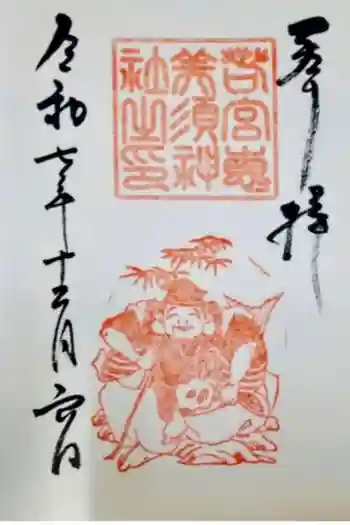 奉拝
若宮恵
美須神
社之印
令和七年十二月六日